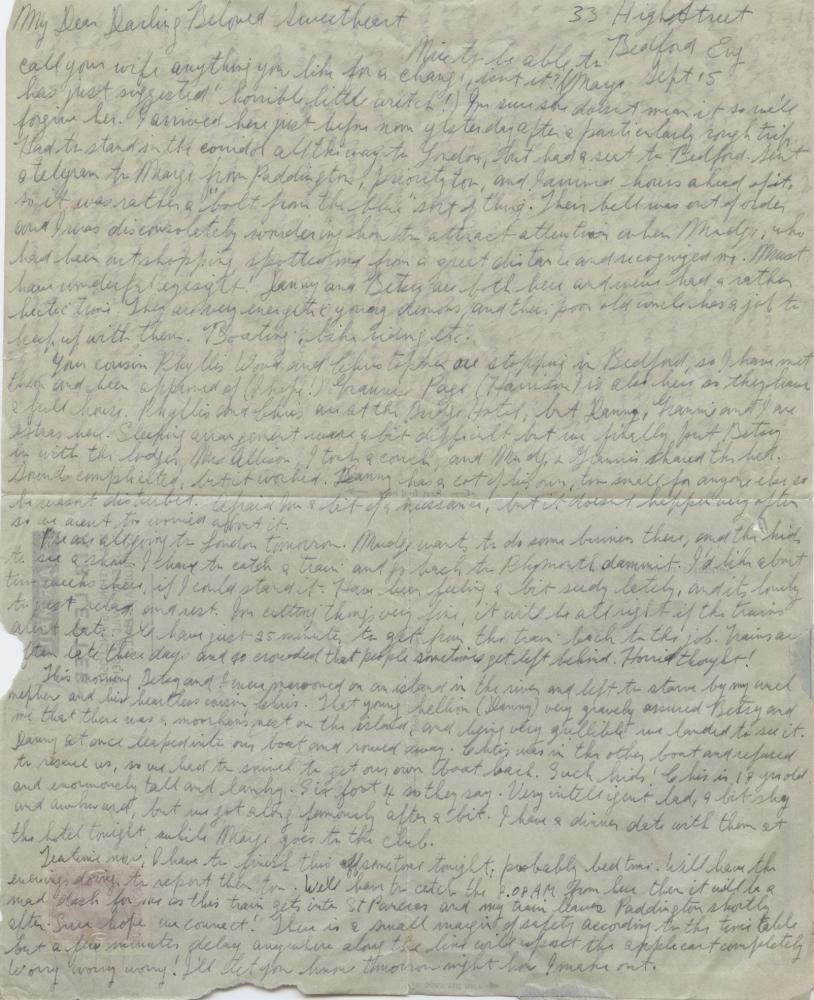 My Dear Darling Beloved Sweetheart
33 High Street
Bedford Eng
Sept 15
Nice to be able to
call your wife anything you like for a change, isn't it? (Marge
has just suggested "horrible little wretch"!) I'm sure she doesn't mean it so we'll
forgive her. I arrived here just before noon yesterday after a particularly rough trip.
Had to stand in the corridor all the way to London, but had a seat to Bedford. Sent
a telegram to Marge from Paddington, priority too, and I arrived hours ahead of it,
so it was rather a "bolt from the blue" sort of thing. Their bell was out of order
and I was disconsolately wondering how to attract attention when Madge, who
had been out shopping, spotted me from a great distance and recognized me. Must
have wonderful eyesight! Danny and Betsy are both here and we've had a rather
hectic time. They are very energetic young demons, and their poor old uncle has a job to
keep up with them. Boating, bike riding etc.
Your cousin Phyllis Wood and Christopher are stopping in Bedford, so I have met
them and been approved of (I hope!) Grannie Page (Harrison) is also here so they have
a full house. Phyllis and Chris are at the Bridge Hotel, but Danny, Grannie and I are
extras here. Sleeping arrangement were a bit difficult but we finally put Betsy
in with the lodger, Mrs Allison, I took a couch, and Madge & Grannie shared the bed.
Sounds complicated, but it worked. Danny has a cot of his own, too small for anyone else, so
he wasn't disturbed. Afraid I'm a bit of a nuisance, but it doesn't happen very often
so we aren't too worried about it.
We are all going to London tomorrow. Madge wants to do some business there, and the kids
to see a show. I have to catch a train and go back to Plymouth dammit. I'd like about
two weeks here, if I could stand it. Have been feeling a bit seedy lately, and it's lovely
to just relax and rest. I'm cutting things very fine, it will be all right if the trains
aren't late. I'll have just 25 minutes to get from the train back to the job. Trains are
often late these days and so crowded that people sometimes get left behind. Horrid thought!
This morning Betsy and I were marooned on an island in the river and left to starve by my cruel
nephew and his heartless cousin Chris. That young hellion (Danny) very gravely assured Betsy and
me that there was a moorhens nest on the island, and being very gullible we landed to see it.
Danny at once leaped into our boat and rowed away. Chris was in the other boat and refused
to rescue us, so we had to swim to get our own boat back. Such kids! Chris is 17 yrs old
and enormously tall and lanky. Six foot 4 so they say. Very intelligent lad, a bit shy
and awkward, but we got along famously after a bit. I have a dinner date with them at
the hotel tonight, while Marge goes to the club.
Teatime now, I have to finish this off sometime tonight, probably bedtime. Will have the
evenings doings to report then too. We'll have to catch the .08 AM from here then it will be a
mad dash for me as this train gets into St Pancras and my train leaves Paddington shortly
after. Sure hope we connect! There is a small margin of safety according to the time table
but a few minutes delay anywhere along the line will upset the applecart completely
Worry worry worry! I'll let you know tomorrow night how I make out.